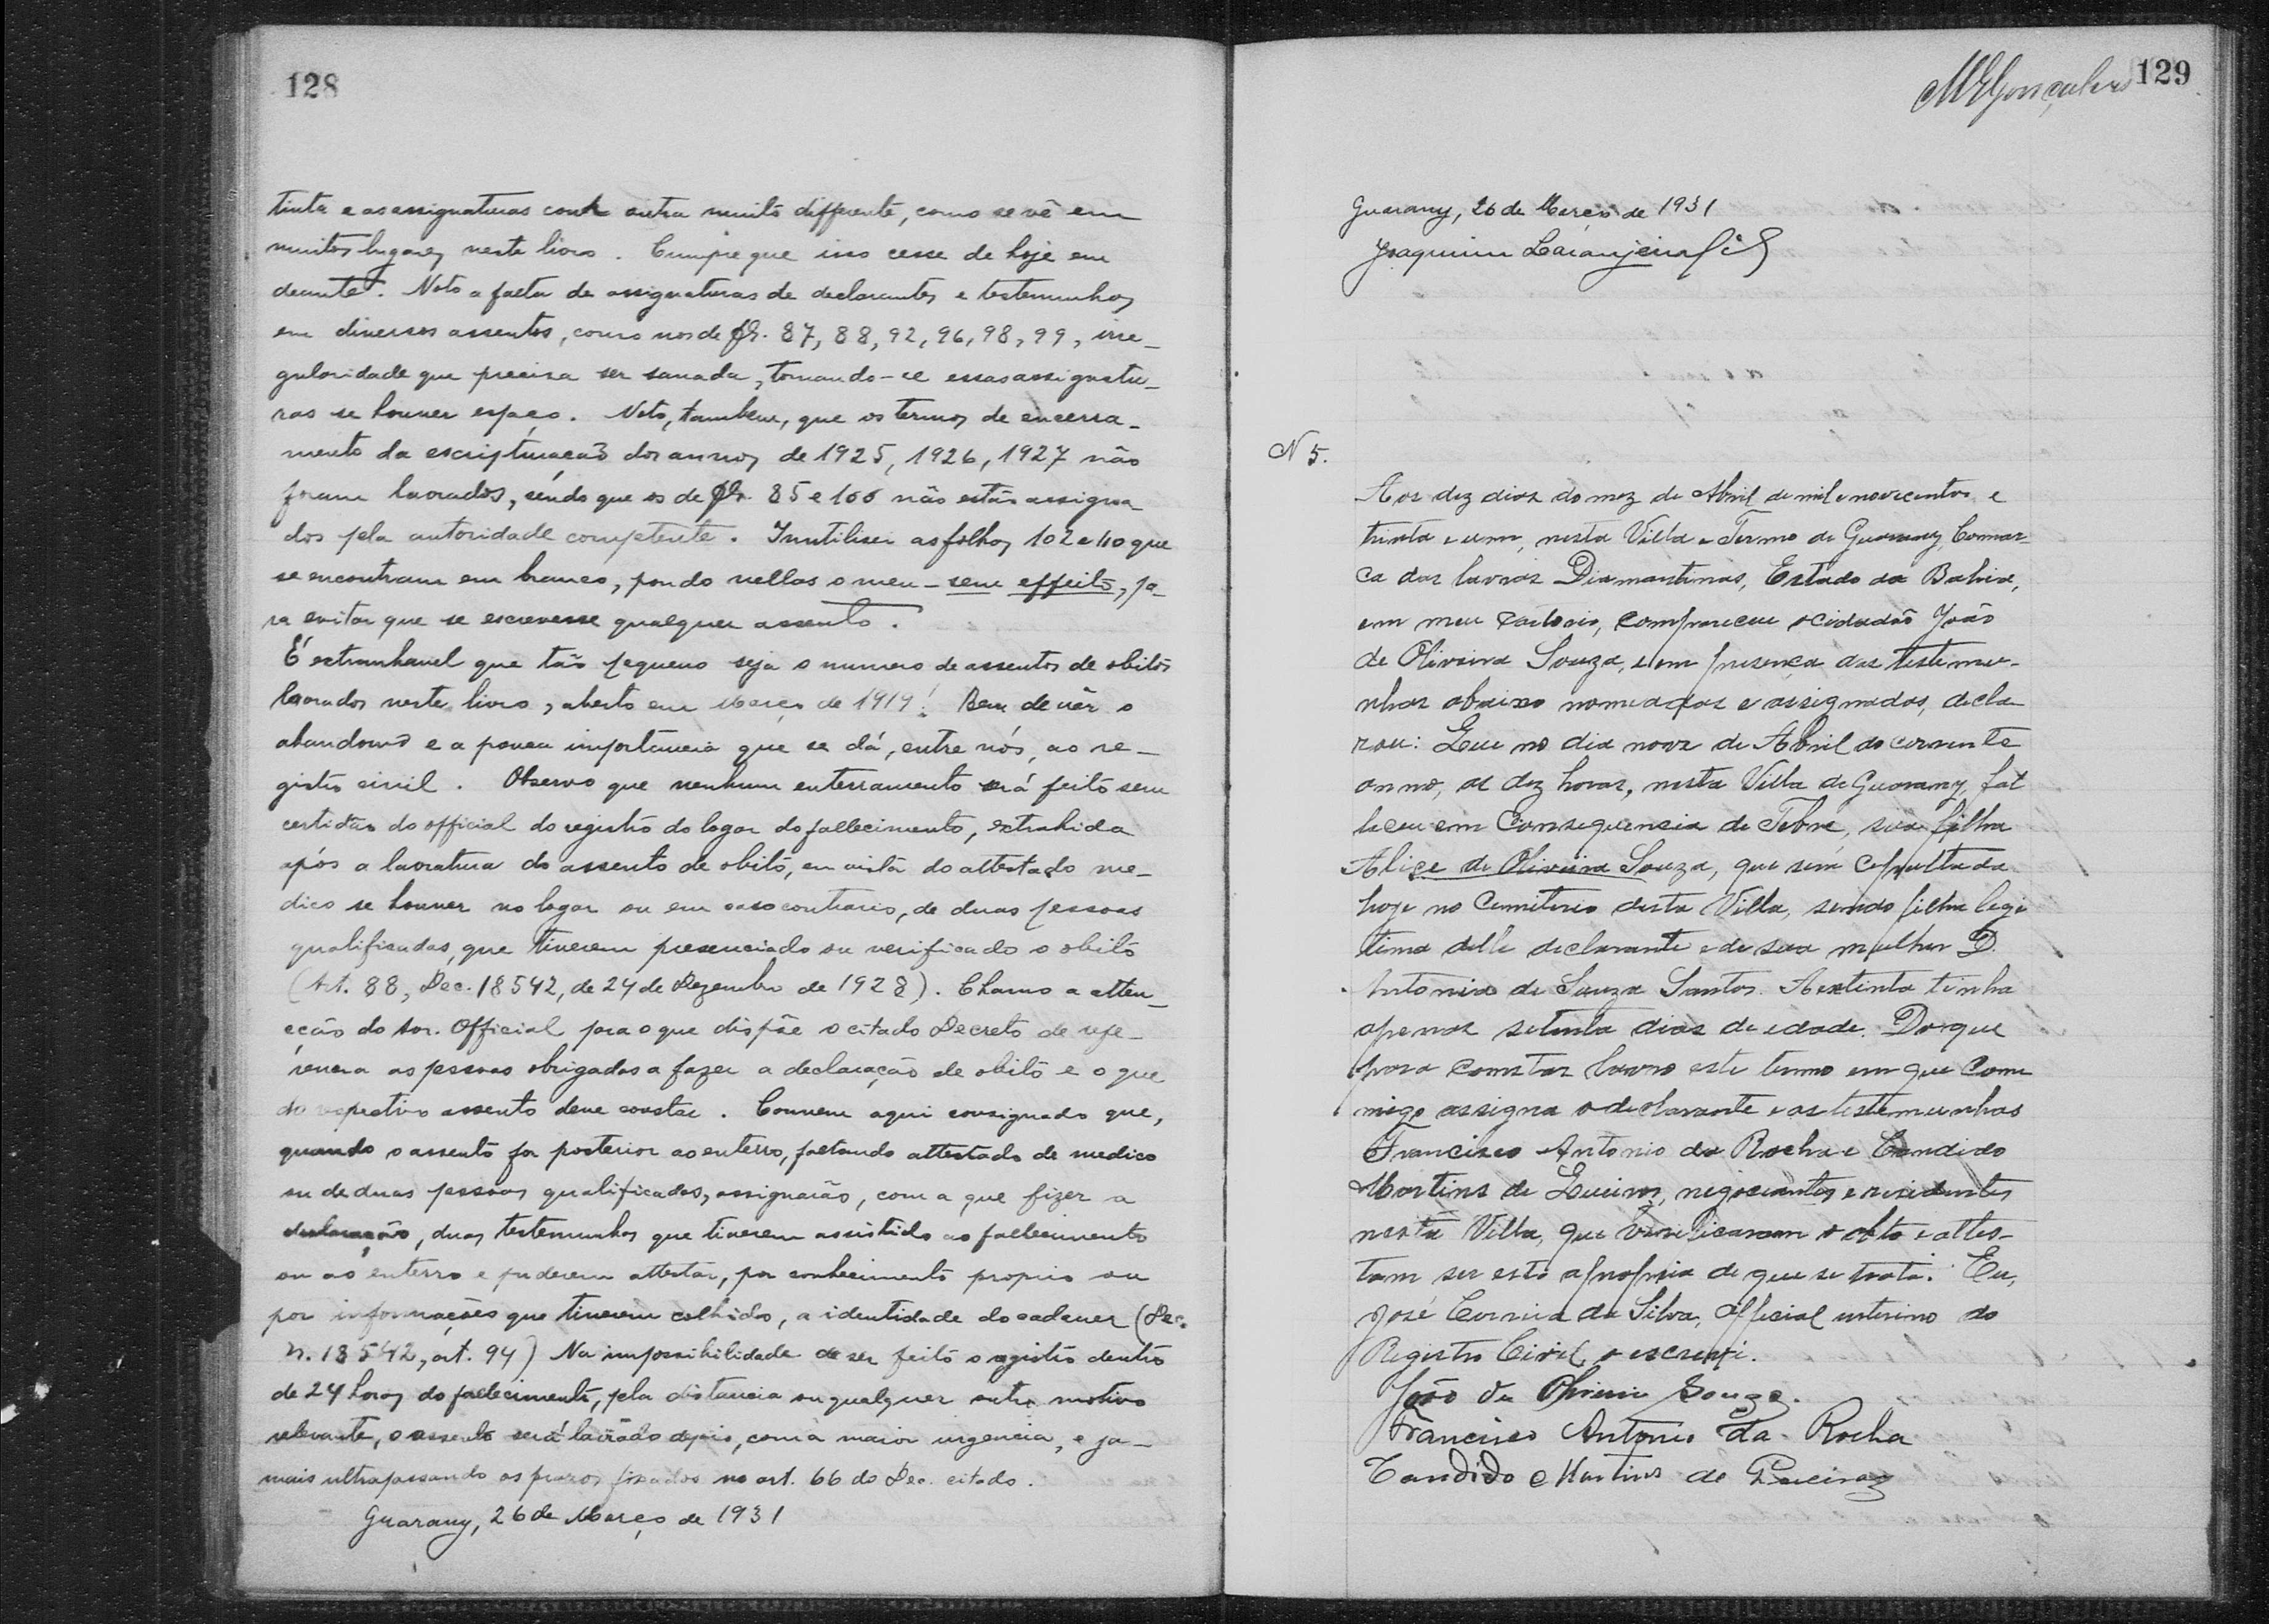 128
tinta e as assignaturas com outra muito differente, como se vê em
muitos lugares neste livro. Cumpre que isso cesse de hoje em
deante. Noto a falta de assignaturas de declarantes e testemunhas
em diversos assentos, como nos de fls. 87, 88, 92, 96, 98, 99, irre-
gularidade que precisa ser sanada, tomando-se essas assignatu-
ras se houver espaço. Noto, tambem, que os termos de encerra-
mento da escripturação dos annos de 1925, 1926, 1927 não
foram lavrados, sendo que os de fls. 85 e 100 não estão assigna
dos pela autoridade competente. Inutilisei as folhas 102 e 110 que
se encontram em branco, pondo nellas o meu - sem effeito, pa-
ra evitar que se escrevesse qualquer assento.
É extranhavel que tão pequeno seja o numero de assentos de obitos
lavrados neste livro, aberto em Março de 1919! Bem de vêr o
abandono e a pouca importancia que se dá, entre nós, ao re-
gistro civil. Observo que nenhum enterramento será feito sem
certidão do official do registro do logar do fallecimento, extrahida
após a lavratura do assento de obito, em vista do attestado me-
dico se houver no logar ou em caso contrario, de duas pessoas
qualificadas, que tiverem presenciado ou verificado o obito
(Art. 88, Dec. 18542, de 24 de Dezembro de 1928). Chamo a atten-
cção do snr. Official para o que dispõe o citado Decreto de refe-
rencia as pessoas obrigadas a fazer a declaração de obito e o que
do respectivo assento deve constar. Convem aqui consignado que,
quando o assento for posterior ao enterro, faltando attestado de medico
ou de duas pessoas qualificadas, assignarão, com a que fizer a
declaração, duas testemunhas que tiverem assistido ao fallecimento
ou ao enterro e puderem attestar, por conhecimento proprio ou
por informações que tiverem colhidos, a identidade do cadaver (Dec.
N. 18542, art. 94) Na impossibilidade de ser feito o registro dentro
de 24 horas do fallecimento, pela distancia ou qualquer outro motivo
relevante, o assento será lavrado depois, com a maior urgencia, e ja-
mais ultrapassando os prazos fixados no art. 66 do Dec. citado.
Guarany, 26 de Março de 1931
MEGonçalves 129
Guarany, 26 de Março de 1931
Joaquim Laranjeira
N 5.
Aos dez dias do mez de Abril de mil e novecentos e
trinta e um, nesta Villa e Termo de Guarany, Comar-
ca das lavras Diamantinas, Estado da Bahia,
em meu cartorio, compareceu o cidadão João
de Oliveira Souza, e em presença das testemu-
nhas abaixo nomeadas e assignadas, decla
rou: Que no dia nove de Abril do corrente
anno, as dez horas, nesta Villa de Guarany, fal
leceu em Consequencia de Febre, sua filha
Alice de Oliveira Souza, que será cepultada
hoje no Cemiterio desta Villa, sendo filha legi
tima delle declarante e de sua mulher D.
Antonia de Souza Santos. A extinta tinha
apenas setenta dias de edade. Do que
para constar lavro este termo em que Com
migo assigna o declarante e as testemunhas
Francisco Antonio da Rocha e Candido
Martins de Queiroz, negociantes e residentes
nesta Villa, que verificaram o obto e attes-
tam ser este a propria de que se trata. Eu,
José Correia da Silva, Official interino do
Registro Civil, o escrevi.
João de Oliveira Souza.
Francisco Antonio da Rocha
Candido Martins de Queiroz